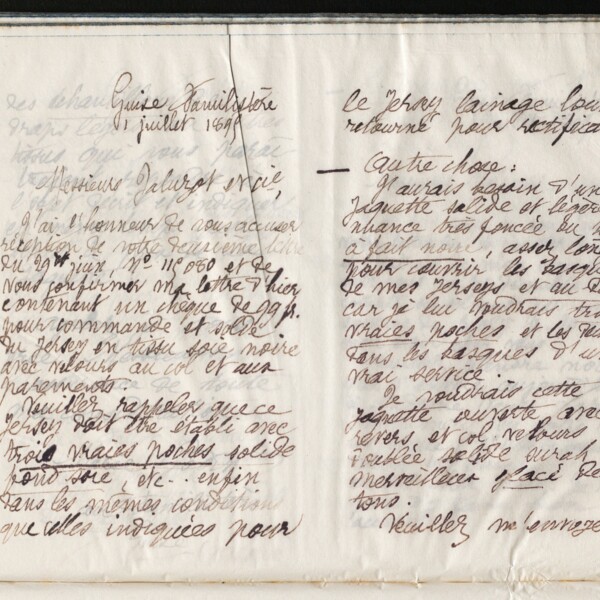 Guise Familistère
1 juillet 1895
Messieurs Jaluzot et Cie,
J'ai l'honneur de vous accuser
réception de votre deuxième lettre
du 29 juin, N° 115 080 et de
vous confirmer ma lettre d'hier
contenant un chèque de 99 f.
pour commande et solde
du Jersey en tissu soie noire
avec velours au col et aux
parements.
Veuillez rappeler que ce
Jersey doit être établi avec
trois vraies poches solide
fond soie, etc.. enfin
dans les mêmes conditions
que celles indiquées pour
le Jersey lainage
retourné pour rectifica
Autre chose:
J'aurais besoin d'un
jaquette solide et légère
nuance très foncée ou
à fait noire, assez lon
pour couvrir les basq
de mes Jerseys et au
car je lui voudrais tro
vraies poches et les
dans les basques d'u
vrai service.
Je voudrais cette
jaquette ouverte avec
revers et col velours
doublée solide surah
merveilleux glacé de
tons.
Veuillez m'envoye